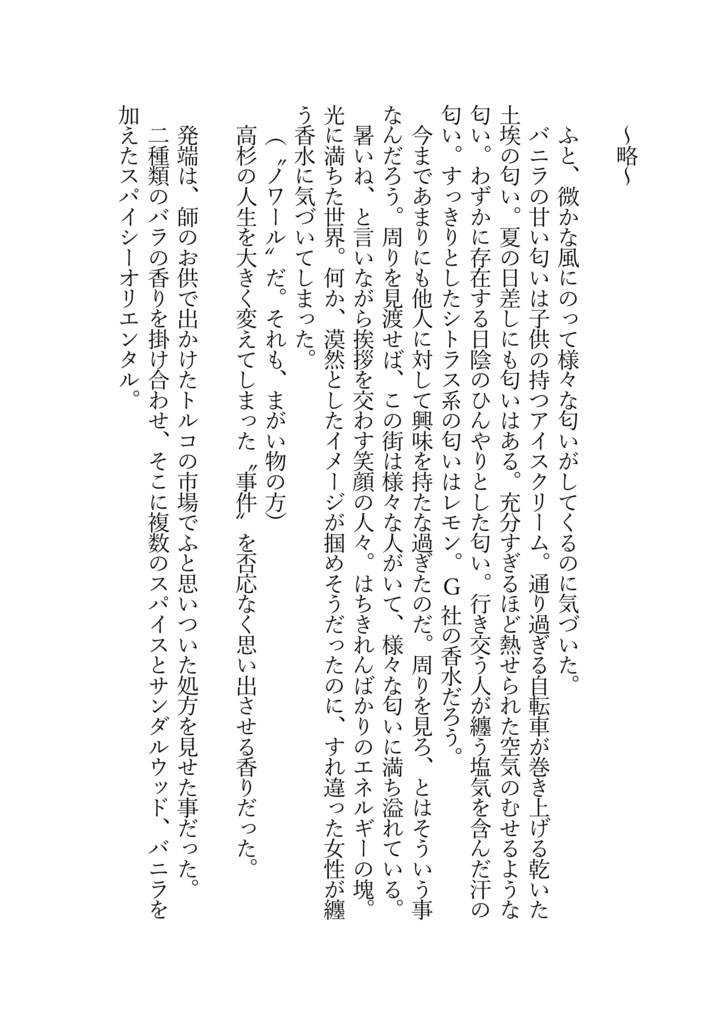 ～略～
ふと、微かな風にのって様々な匂いがしてくるのに気づいた。
バニラの甘い匂いは子供の持つアイスクリーム。通り過ぎる自転車が巻き上げる乾いた
土埃の匂い。夏の日差しにも匂いはある。充分すぎるほど熱せられた空気のむせるような
匂い。わずかに存在する日陰のひんやりとした匂い。行き交う人が纏う塩気を含んだ汗の
匂い。すっきりとしたシトラス系の匂いはレモン。G社の香水だろう。
今まであまりにも他人に対して興味を持たな過ぎたのだ。周りを見ろ、とはそういう事
なんだろう。周りを見渡せば、この街は様々な人がいて、様々な匂いに満ち溢れている。
暑いね、と言いながら挨拶を交わす笑顔の人々。はちきれんばかりのエネルギーの塊。
光に満ちた世界。何か、漠然としたイメージが掴めそうだったのに、すれ違った女性が纏
う香水に気づいてしまった。
（〝ノワール〟だ。それも、まがい物の方）
高杉の人生を大きく変えてしまった〝事件〟を否応なく思い出させる香りだった。
発端は、師のお供で出かけたトルコの市場でふと思いついた処方を見せた事だった。
二種類のバラの香りを掛け合わせ、そこに複数のスパイスとサンダルウッド、バニラを
加えたスパイシーオリエンタル。